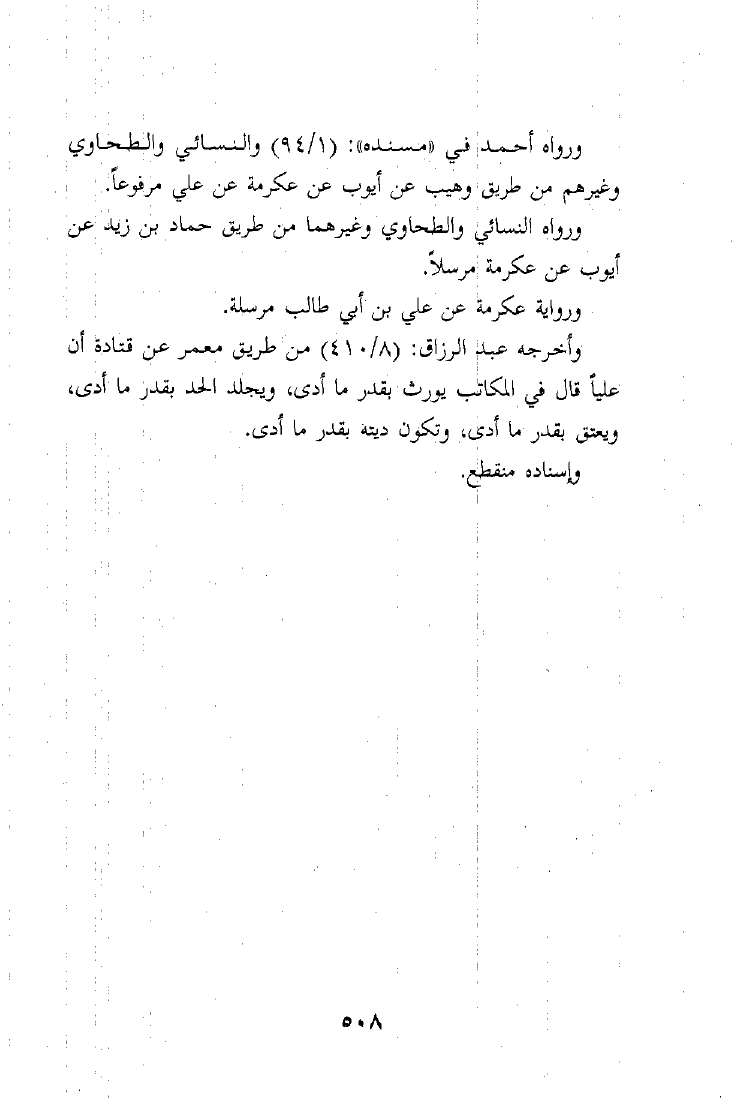 ورواه أحمد في «مسنده»: (٩٤/١) والنسائي والطحاوي
وغيرهم من طريق وهيب عن أيوب عن عكرمة عن علي مرفوعاً.
ورواه النسائي والطحاوي وغيرهما من طريق حماد بن زيد عن
أيوب عن عكرمة مرسلاً.
ورواية عكرمة عن علي بن أبي طالب مرسلة.
وأخرجه عبد الرزاق: (٤١٠/٨) من طريق معمر عن قتادة أن
علياً قال في المكاتب يورث بقدر ما أدى، ويجلد الحد بقدر ما أدى،
ويعتق بقدر ما أدى، وتكون ديته بقدر ما أدى.
وإسناده منقطع.
٥٠٨